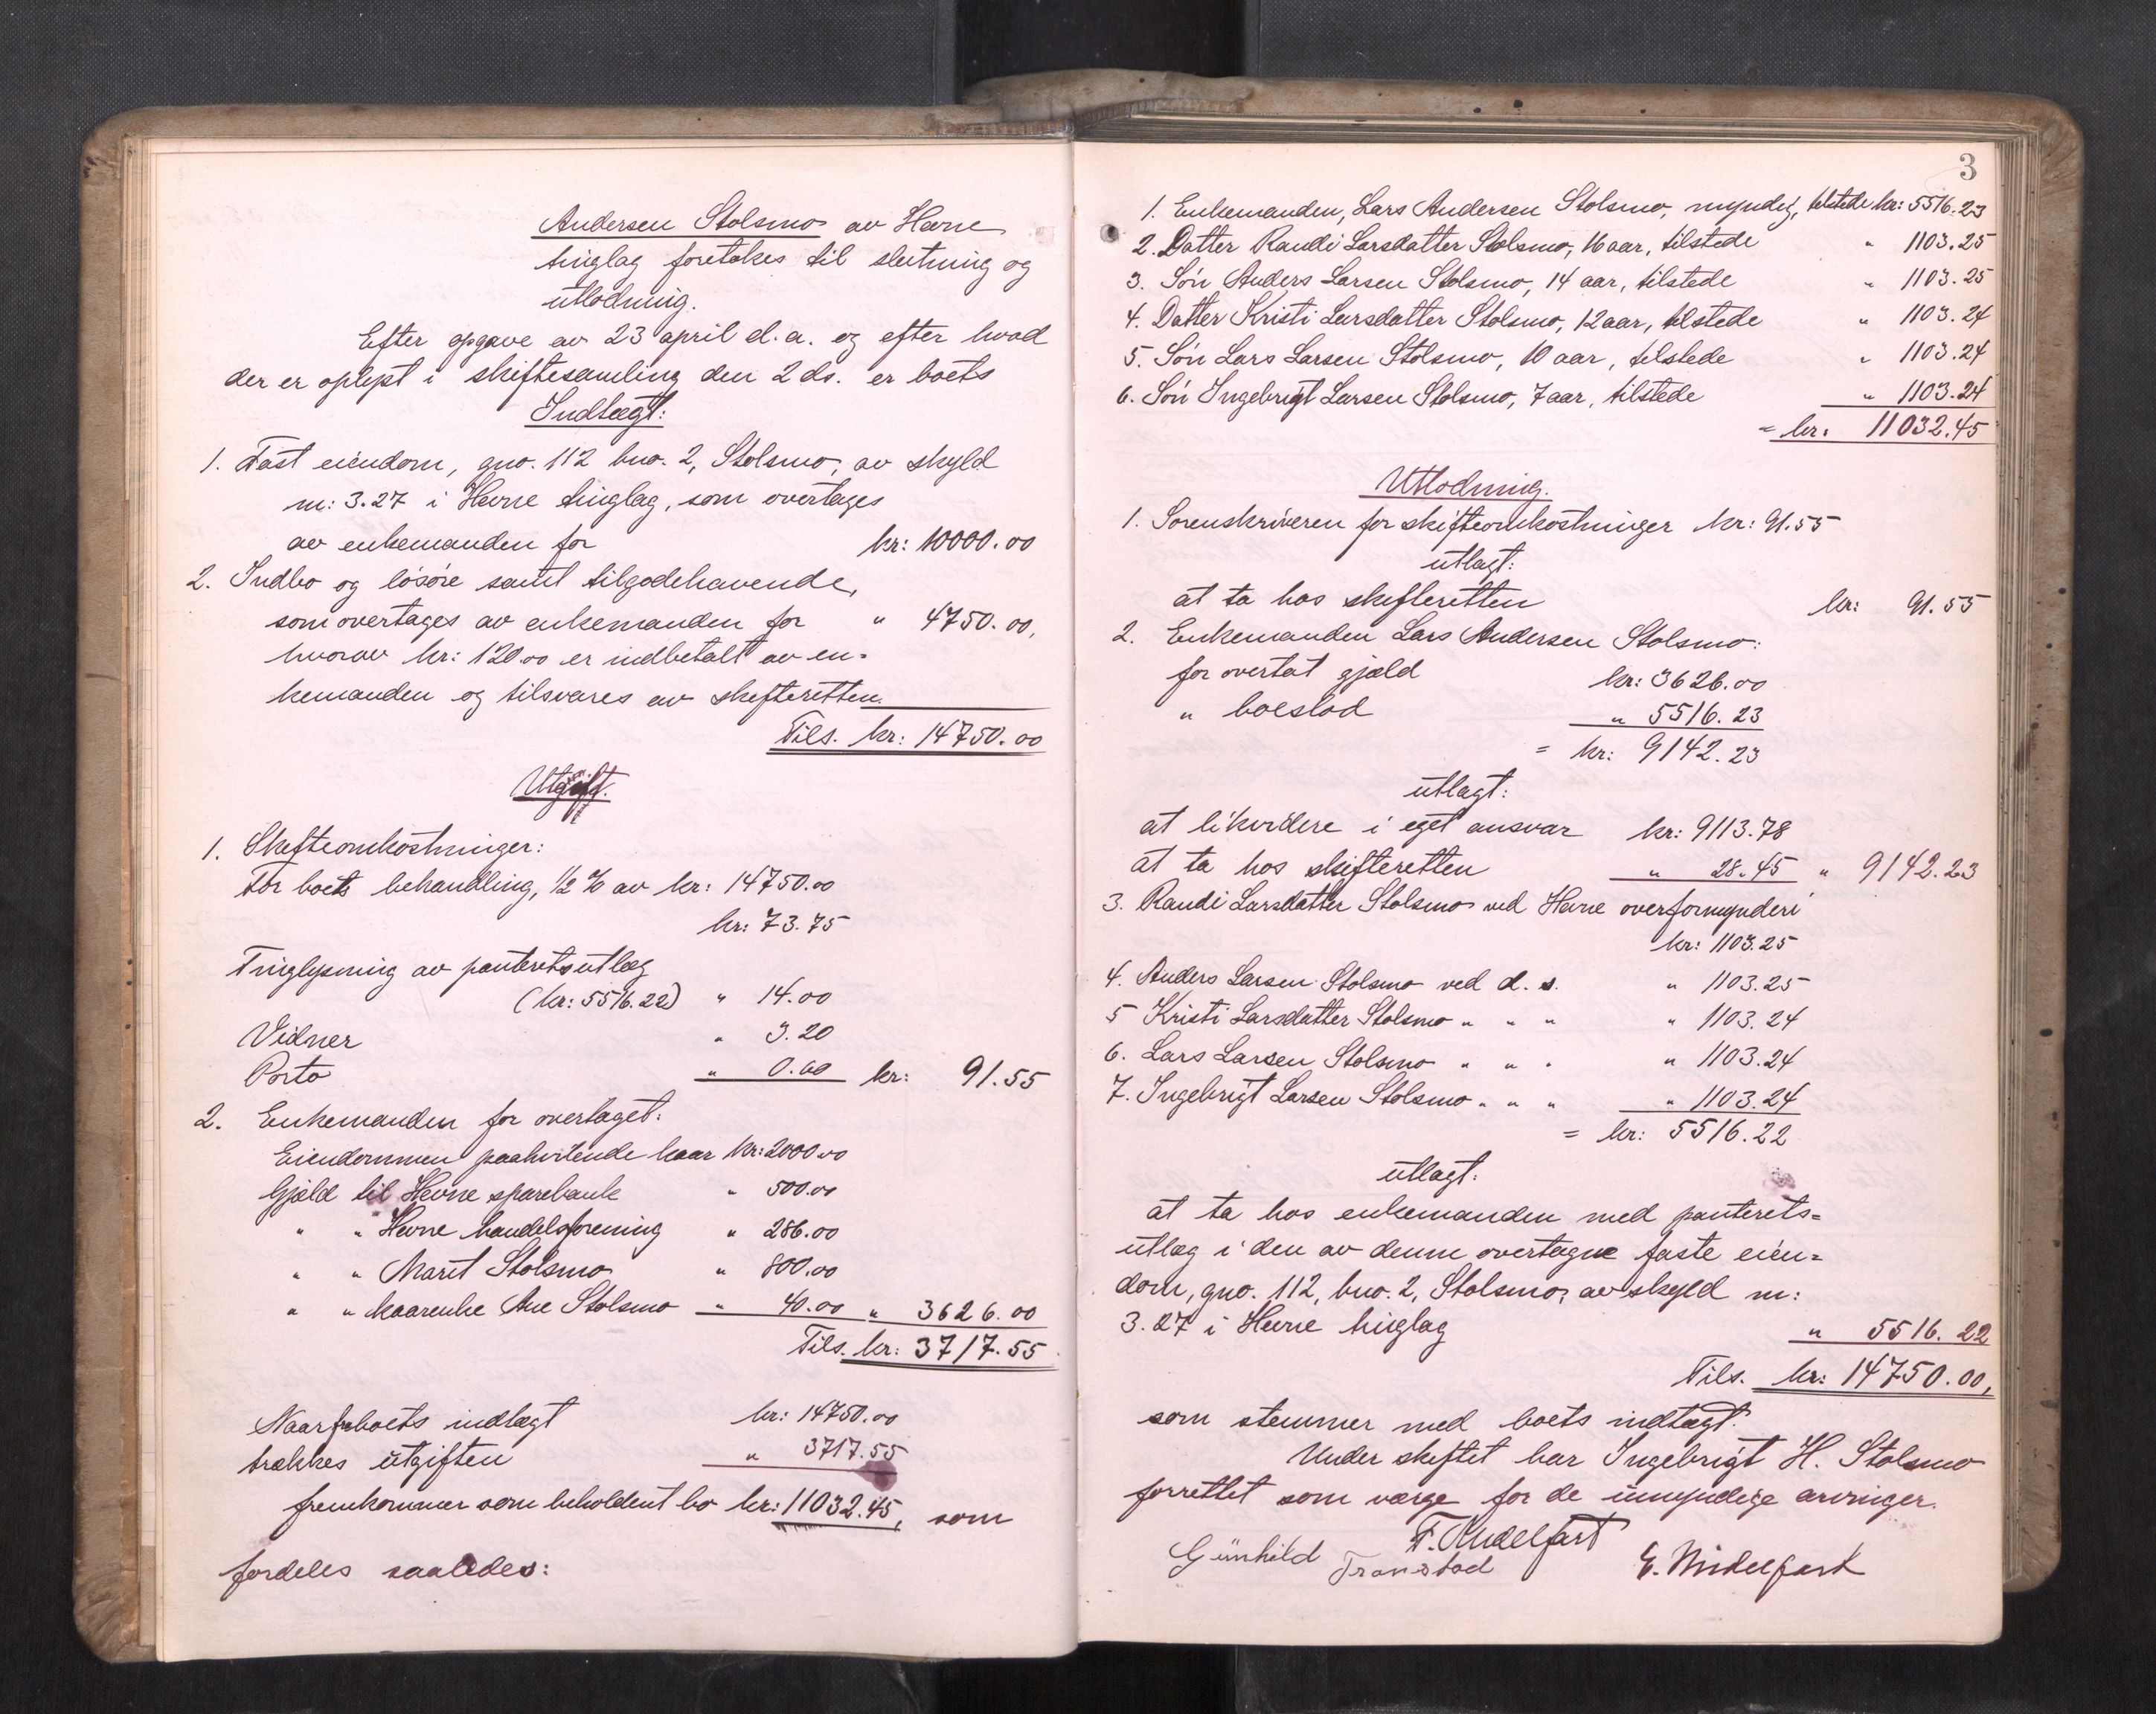 Andersen Stolsmo av Hevne
tinglag foretokes til slutning og
utlodning.
Efter opgave av 23 april d.a. og efter hvad
der er oplyst i skiftesamling den 2 ds. er boets
Indtægt:
1. Fast eiendom, gno. 112 bno. 2, Stolsmo, av skyld
m: 3.27 i Hevne tinglag, som overtages
av enkemanden for kr: 10000.00
2. Indbo og løsøre samt tilgodehavende,
som overtages av enkemanden for " 4750.00,
hvorav kr: 120.00 er indbetalt av en-
kemanden og tilsvares av skifteretten.
Tils. kr: 14750.00
Utgift.
1. Skifteomkostninger:
For boets behandling, 1/2 % av kr: 14750.00
kr: 73.75
Tinglysning av panteretsutlæg
(kr: 5516.22) " 14.00
Vidner " 3.20
Porto " 0.60 kr: 91.55
2. Enkemanden for overtaget:
Eiendommen paahvilende kaar kr: 2000.00
Gjæld til Hevne sparebank " 500.00
" " Hevne handelsforening " 286.00
" " Marit Stolsmo " 800.00
" " kaarenke Ane Stolsmo " 40.00 " 3626.00
Tils. kr: 3717.55
Naar fra boets indtægt kr: 14750.00
trækkes utgiften " 3717.55
fremkommer som beholdent bo kr: 11032.45, som
fordeles saaledes:
3
1. Enkemanden, Lars Andersen Stolsmo, myndig, tilstede kr: 5516.23
2. Datter Randi Larsdatter Stolsmo, 16 aar, tilstede " 1103.25
3. Søn Anders Larsen Stolsmo, 14 aar, tilstede " 1103.25
4. Datter Kristi Larsdatter Stolsmo, 12 aar, tilstede " 1103.24
5. Søn Lars Larsen Stolsmo, 10 aar, tilstede " 1103.24
6. Søn Ingebrigt Larsen Stolsmo, 7 aar, tilstede " 1103.24
= kr: 11032.45
Utlodning.
1. Sorenskriveren for skifteomkostninger kr: 91.55
utlagt:
at ta hos skifteretten kr: 91.55
2. Enkemanden Lars Andersen Stolsmo:
for overtat gjæld kr: 3626.00
" boeslod " 5516.23
= kr: 9142.23
utlagt:
at likvidere i eget ansvar kr: 9113.78
at ta hos skifteretten " 28.45 " 9142.23
3. Randi Larsdatter Stolsmo ved Hevne overformynderi
kr: 1103.25
4. Anders Larsen Stolsmo ved d. s. " 1103.25
5 Kristi Larsdatter Stolsmo " " " " 1103.24
6. Lars Larsen Stolsmo " " " " 1103.24
7. Ingebrigt Larsen Stolsmo " " " " 1103.24
= kr: 5516.22
utlagt:
at ta hos enkemanden med panterets-
utlæg i den av denne overtagne faste eien-
dom, gno. 112, bno. 2, Stolsmo, av skyld m:
3.27 i Hevne tinglag " 5516.22
Tils. kr: 14750.00,
som stemmer med boets indtægt.
Under skiftet har Ingebrigt H. Stolsmo
forrettet som værge for de umyndige arvinger.
F. Midelfart
Gunhild Transtad E. Midelfart